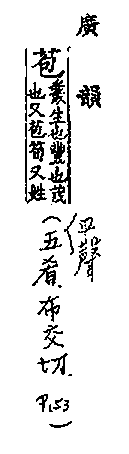 廣韻
苞
叢生也豐也茂
也又苞筍又姓
(平聲
五肴布交切.
P.153)